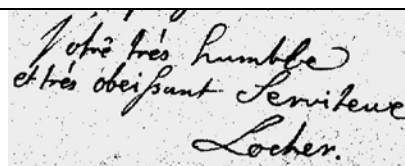 Votre très humble
et très obeissant Serviteur
Locher.